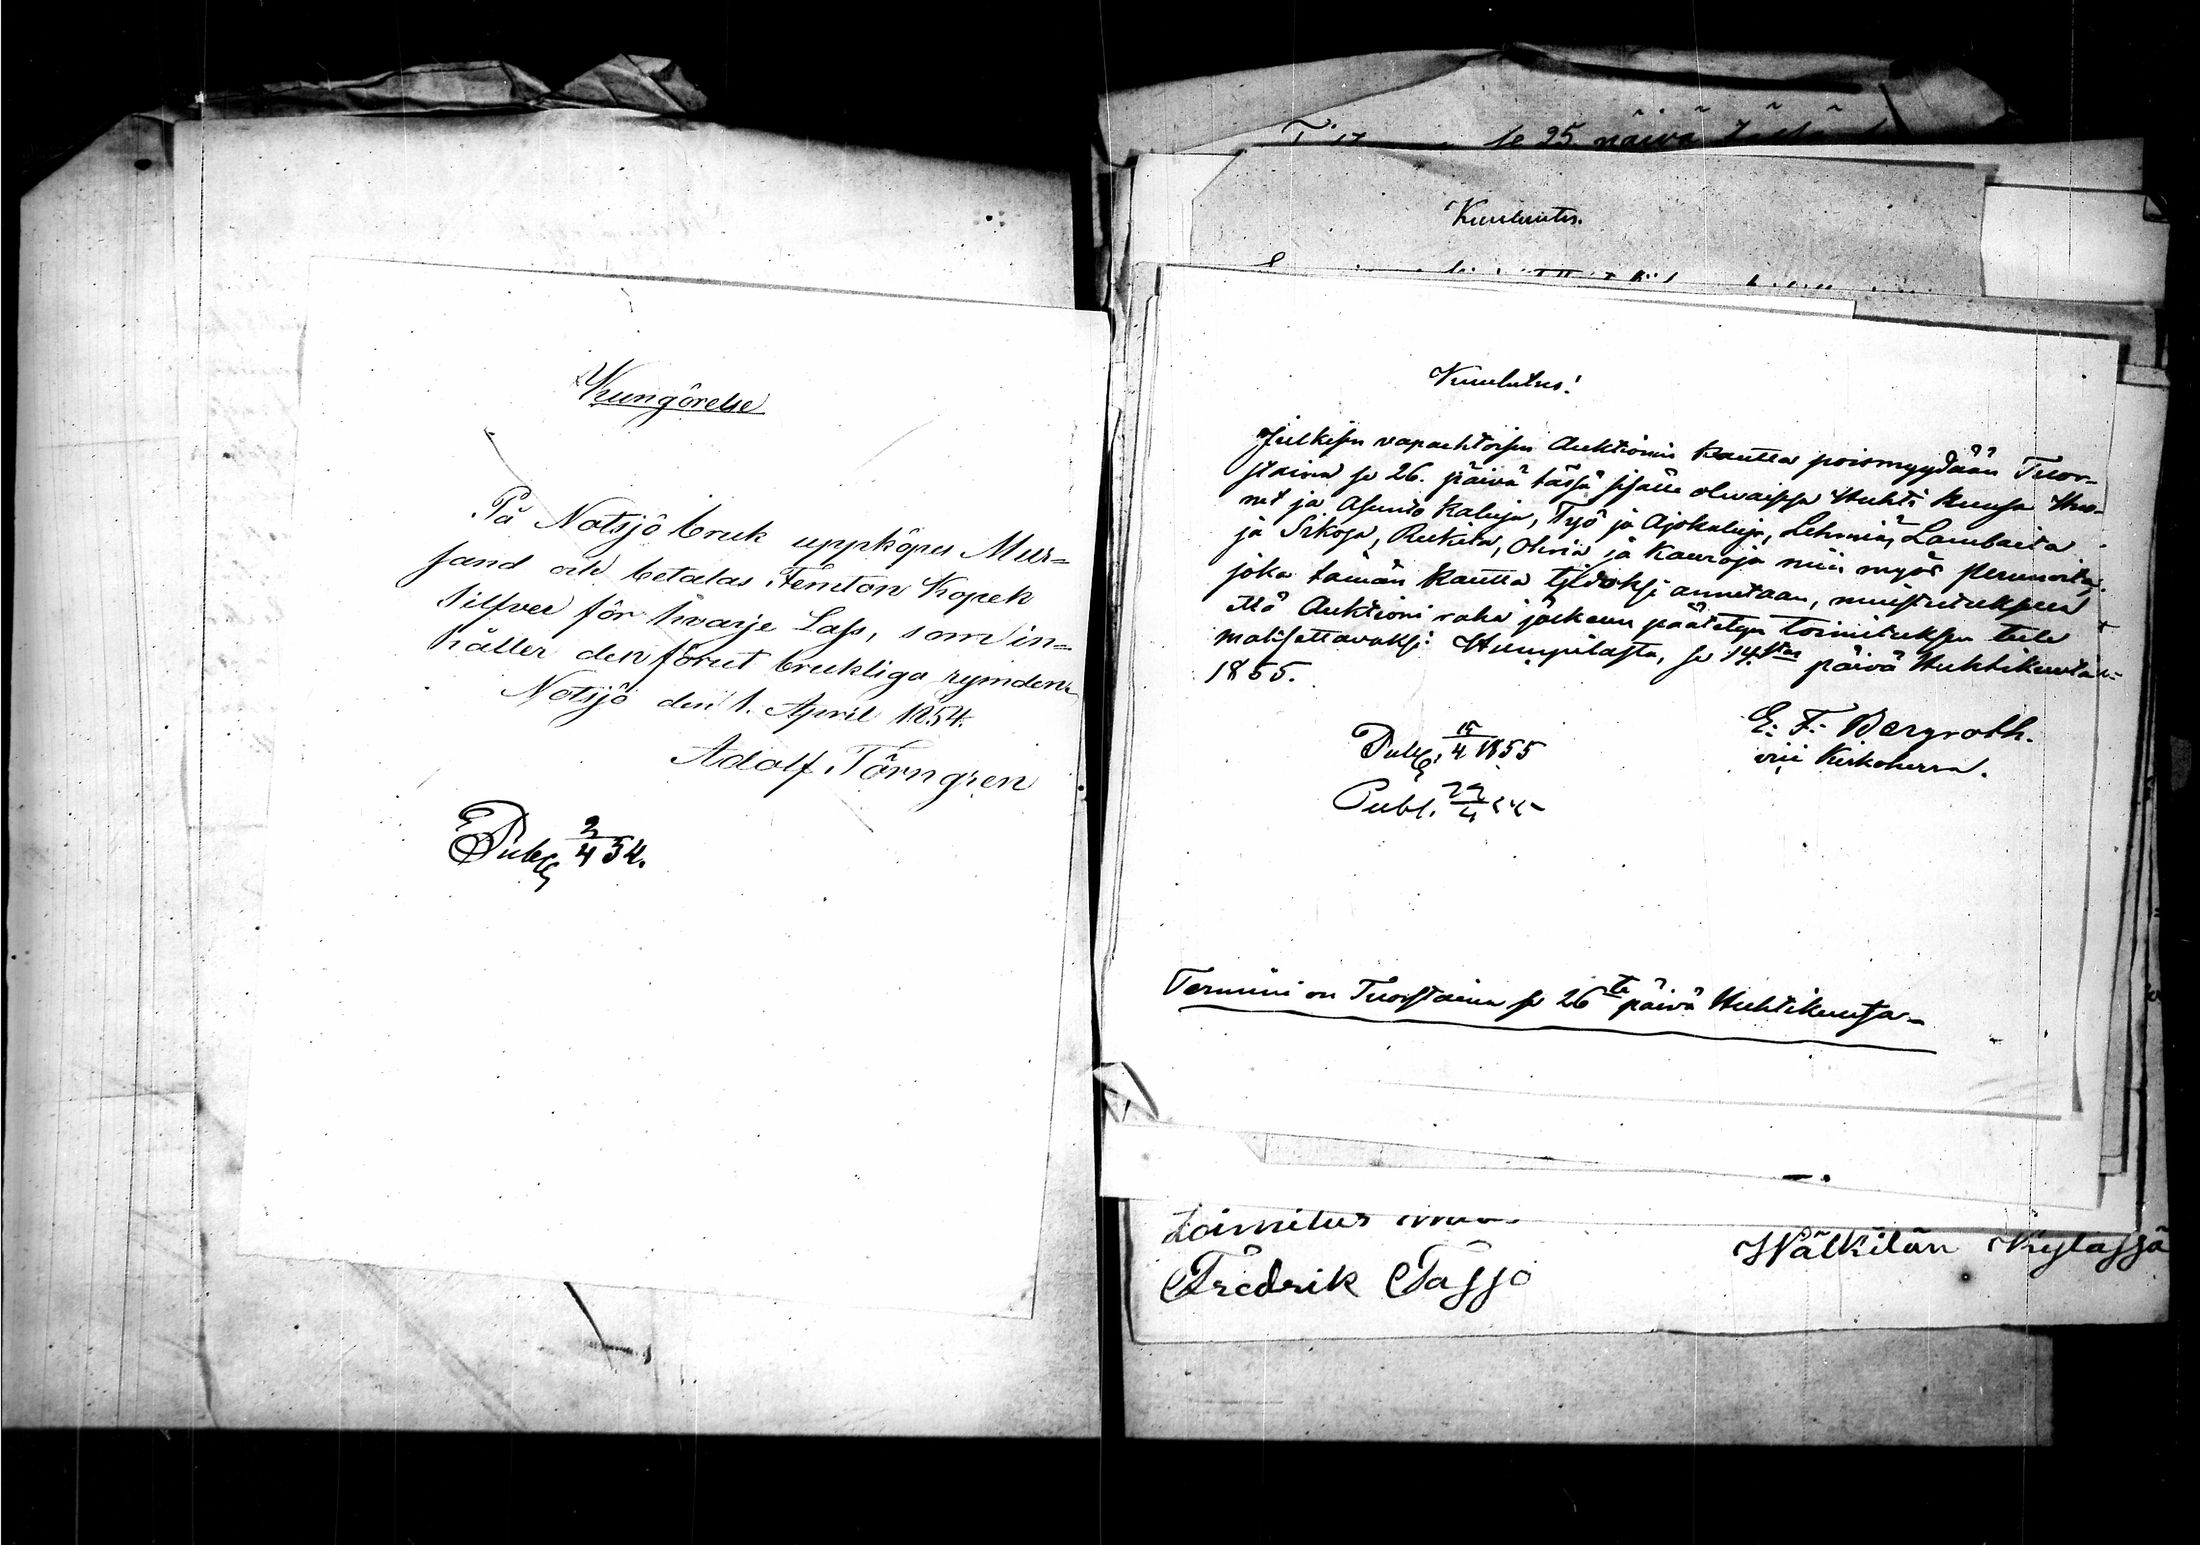 Kungörelse
På Notsjö bruk uppköpes Mur=
sand och betalas Femton Kopek
Silfver för hvarje Lass, som in=
håller den förut brukliga rymden
Notsjö den 1. April 1854.
Adolf Törngren
Publ. 2/4 54.
se 25 päivä
Kuulutus.
Kuulutus!
Julkisen vapaehtoisen Auktionin kautta poismyydään Tuor-
staina se 26. päivä tässä sisälle olevaissa Huhti kuusa Huo-
net ja Asunto kaluja, Työ ja Ajokaluja, Lehmiä, Lambaita
ja Sikoja, Rukita, Olvia ja kauroja niin myös perunoita,
joka tämän kautta tiedoksi annetaan, muistutuksen
että Auktioni raha jälkeen päätetyn toimituksen tule
maksettavaksi. Humpilasta, se 14sta päivä Huhtikuuta
1855.
E. F. Bergroth.
vii Kirkoherra.
Publ. 15/4 1855
Publ. 22/4 55
Termini on Tuorstaina se 26ta päivä Huhtikuusa
toimitus
Fredrik Tasso
Wälkilän Kylässä